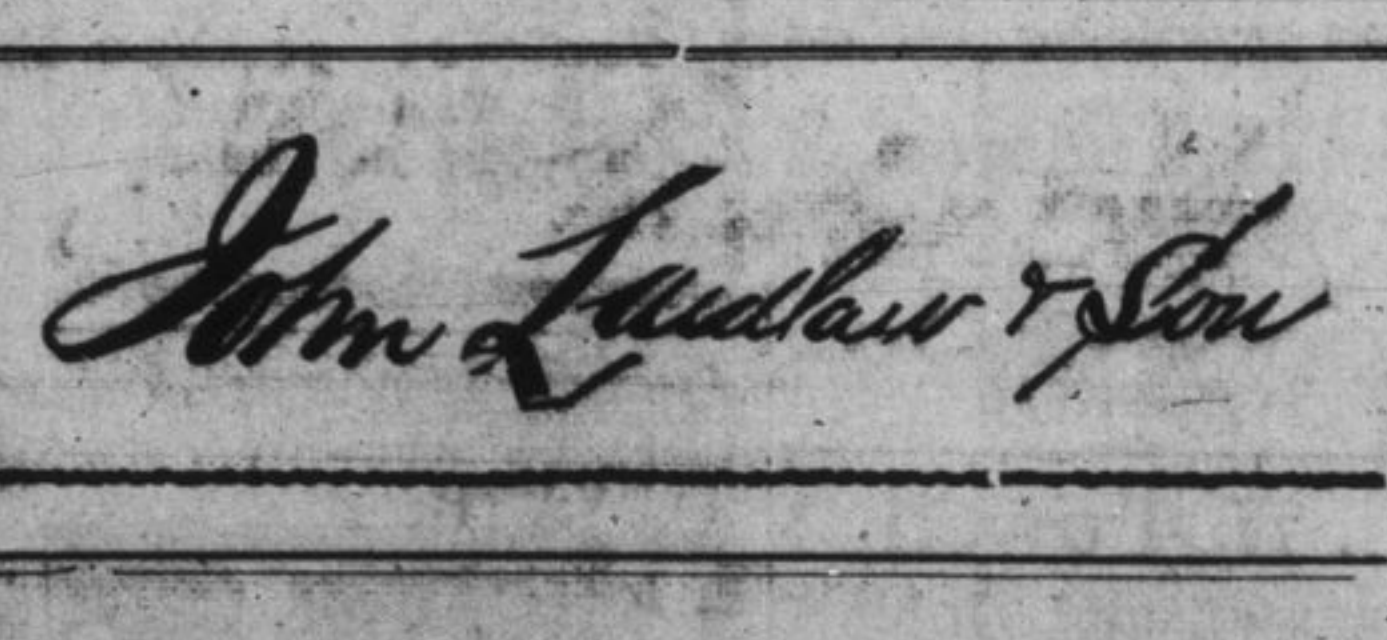 John Laidlaw & Son